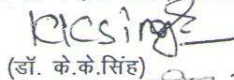 KKSingh
(डॉ. के.के.सिंह)